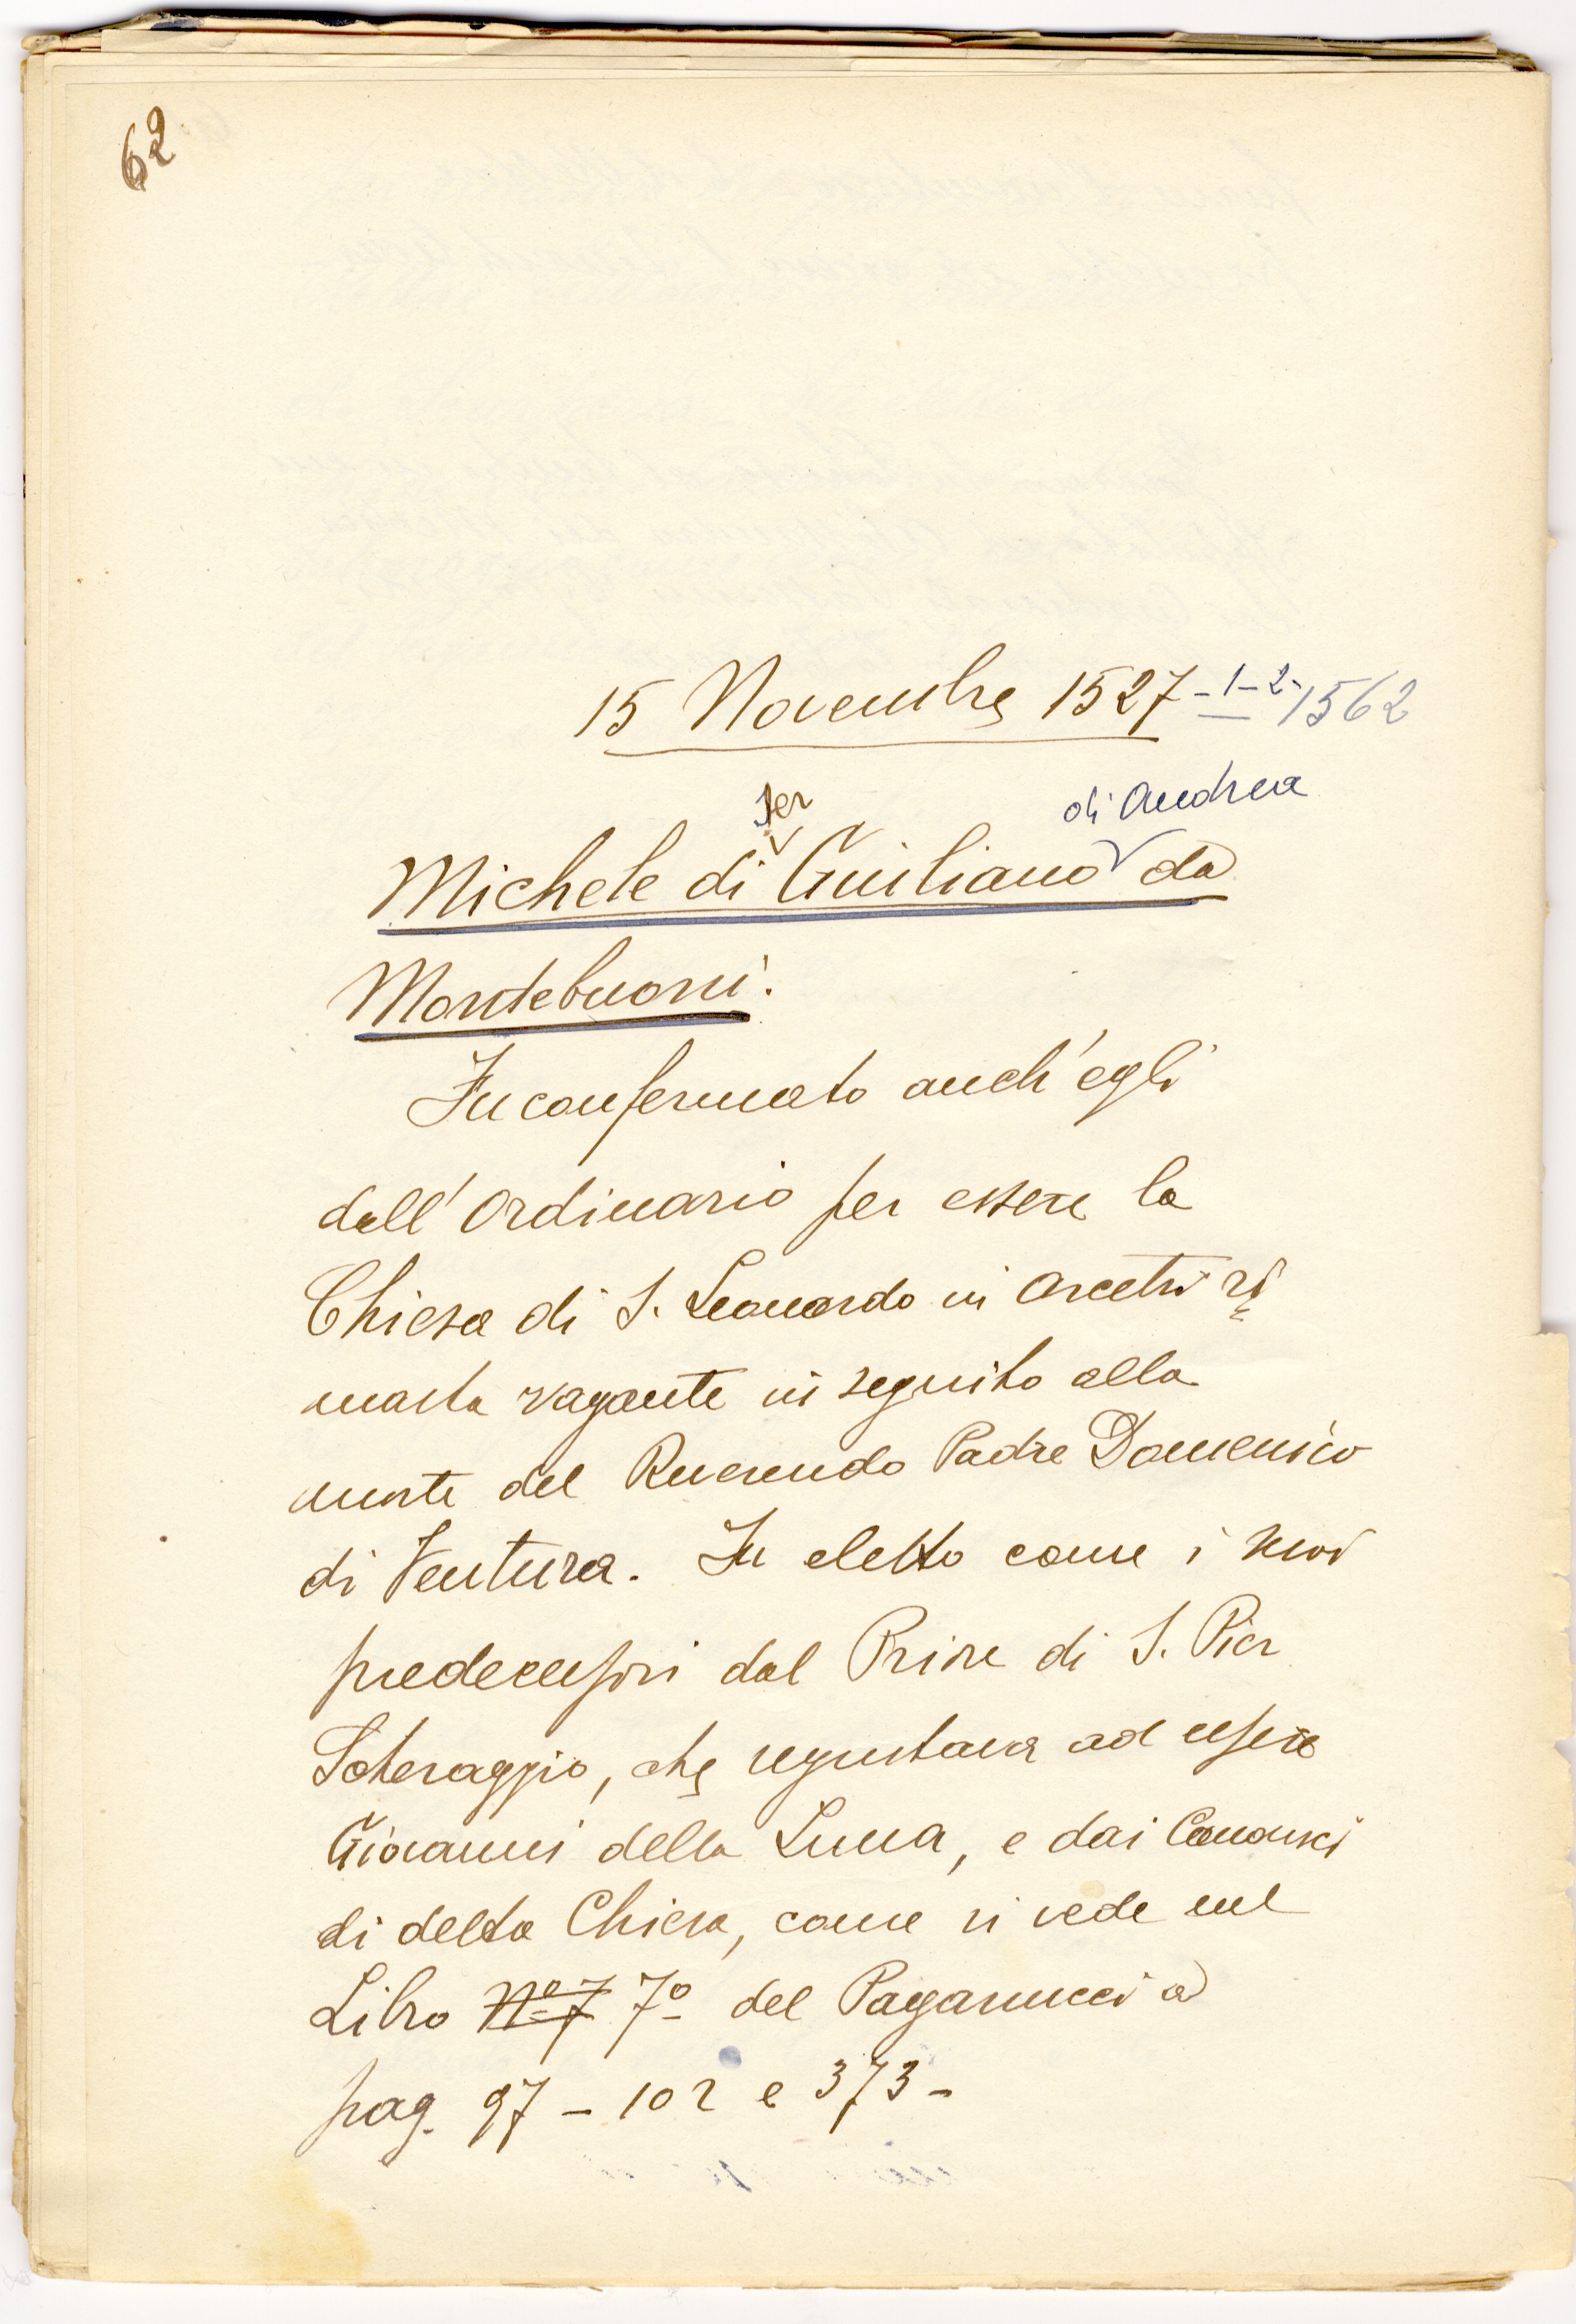 62
15 Novembre 1527 - 1 - 2 - 1562
Ser di Andrea
Michele di Giuliano da
Montebuoni.
Fu confermato anch'egli
dall'Ordinario per essere la
Chiesa di S. Leonardo in Arcetri ri
masta vagante in seguito alla
morte del Reverendo Padre Domenico
di Ventura. Fu eletto come i suoi
predecessori dal Priore di S. Pier
Scheraggio, che seguitava ad essere
Giovanni della Luna, e dai Canonici
di detta Chiesa, come si vede nel
Libro Nº 7 7º del Paganucci a
pag. 97 - 102 e 373 -